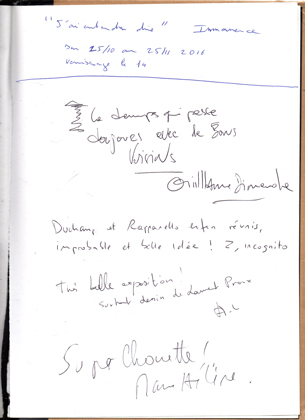 "J'ai entendu dire" Immanence
du 25/10 au 25/11 2011
vernissage le 14
Le temps qui passe
toujours avec de bons
voisins
Guillaume Dimanche
Duchamp et Rapparello enfin réunis,
improbable et belle idée ! Z, incognito
Très belle exposition !
surtout dessin de Laurent Prou
A.L
Super Chouette !
Marie Hélène.